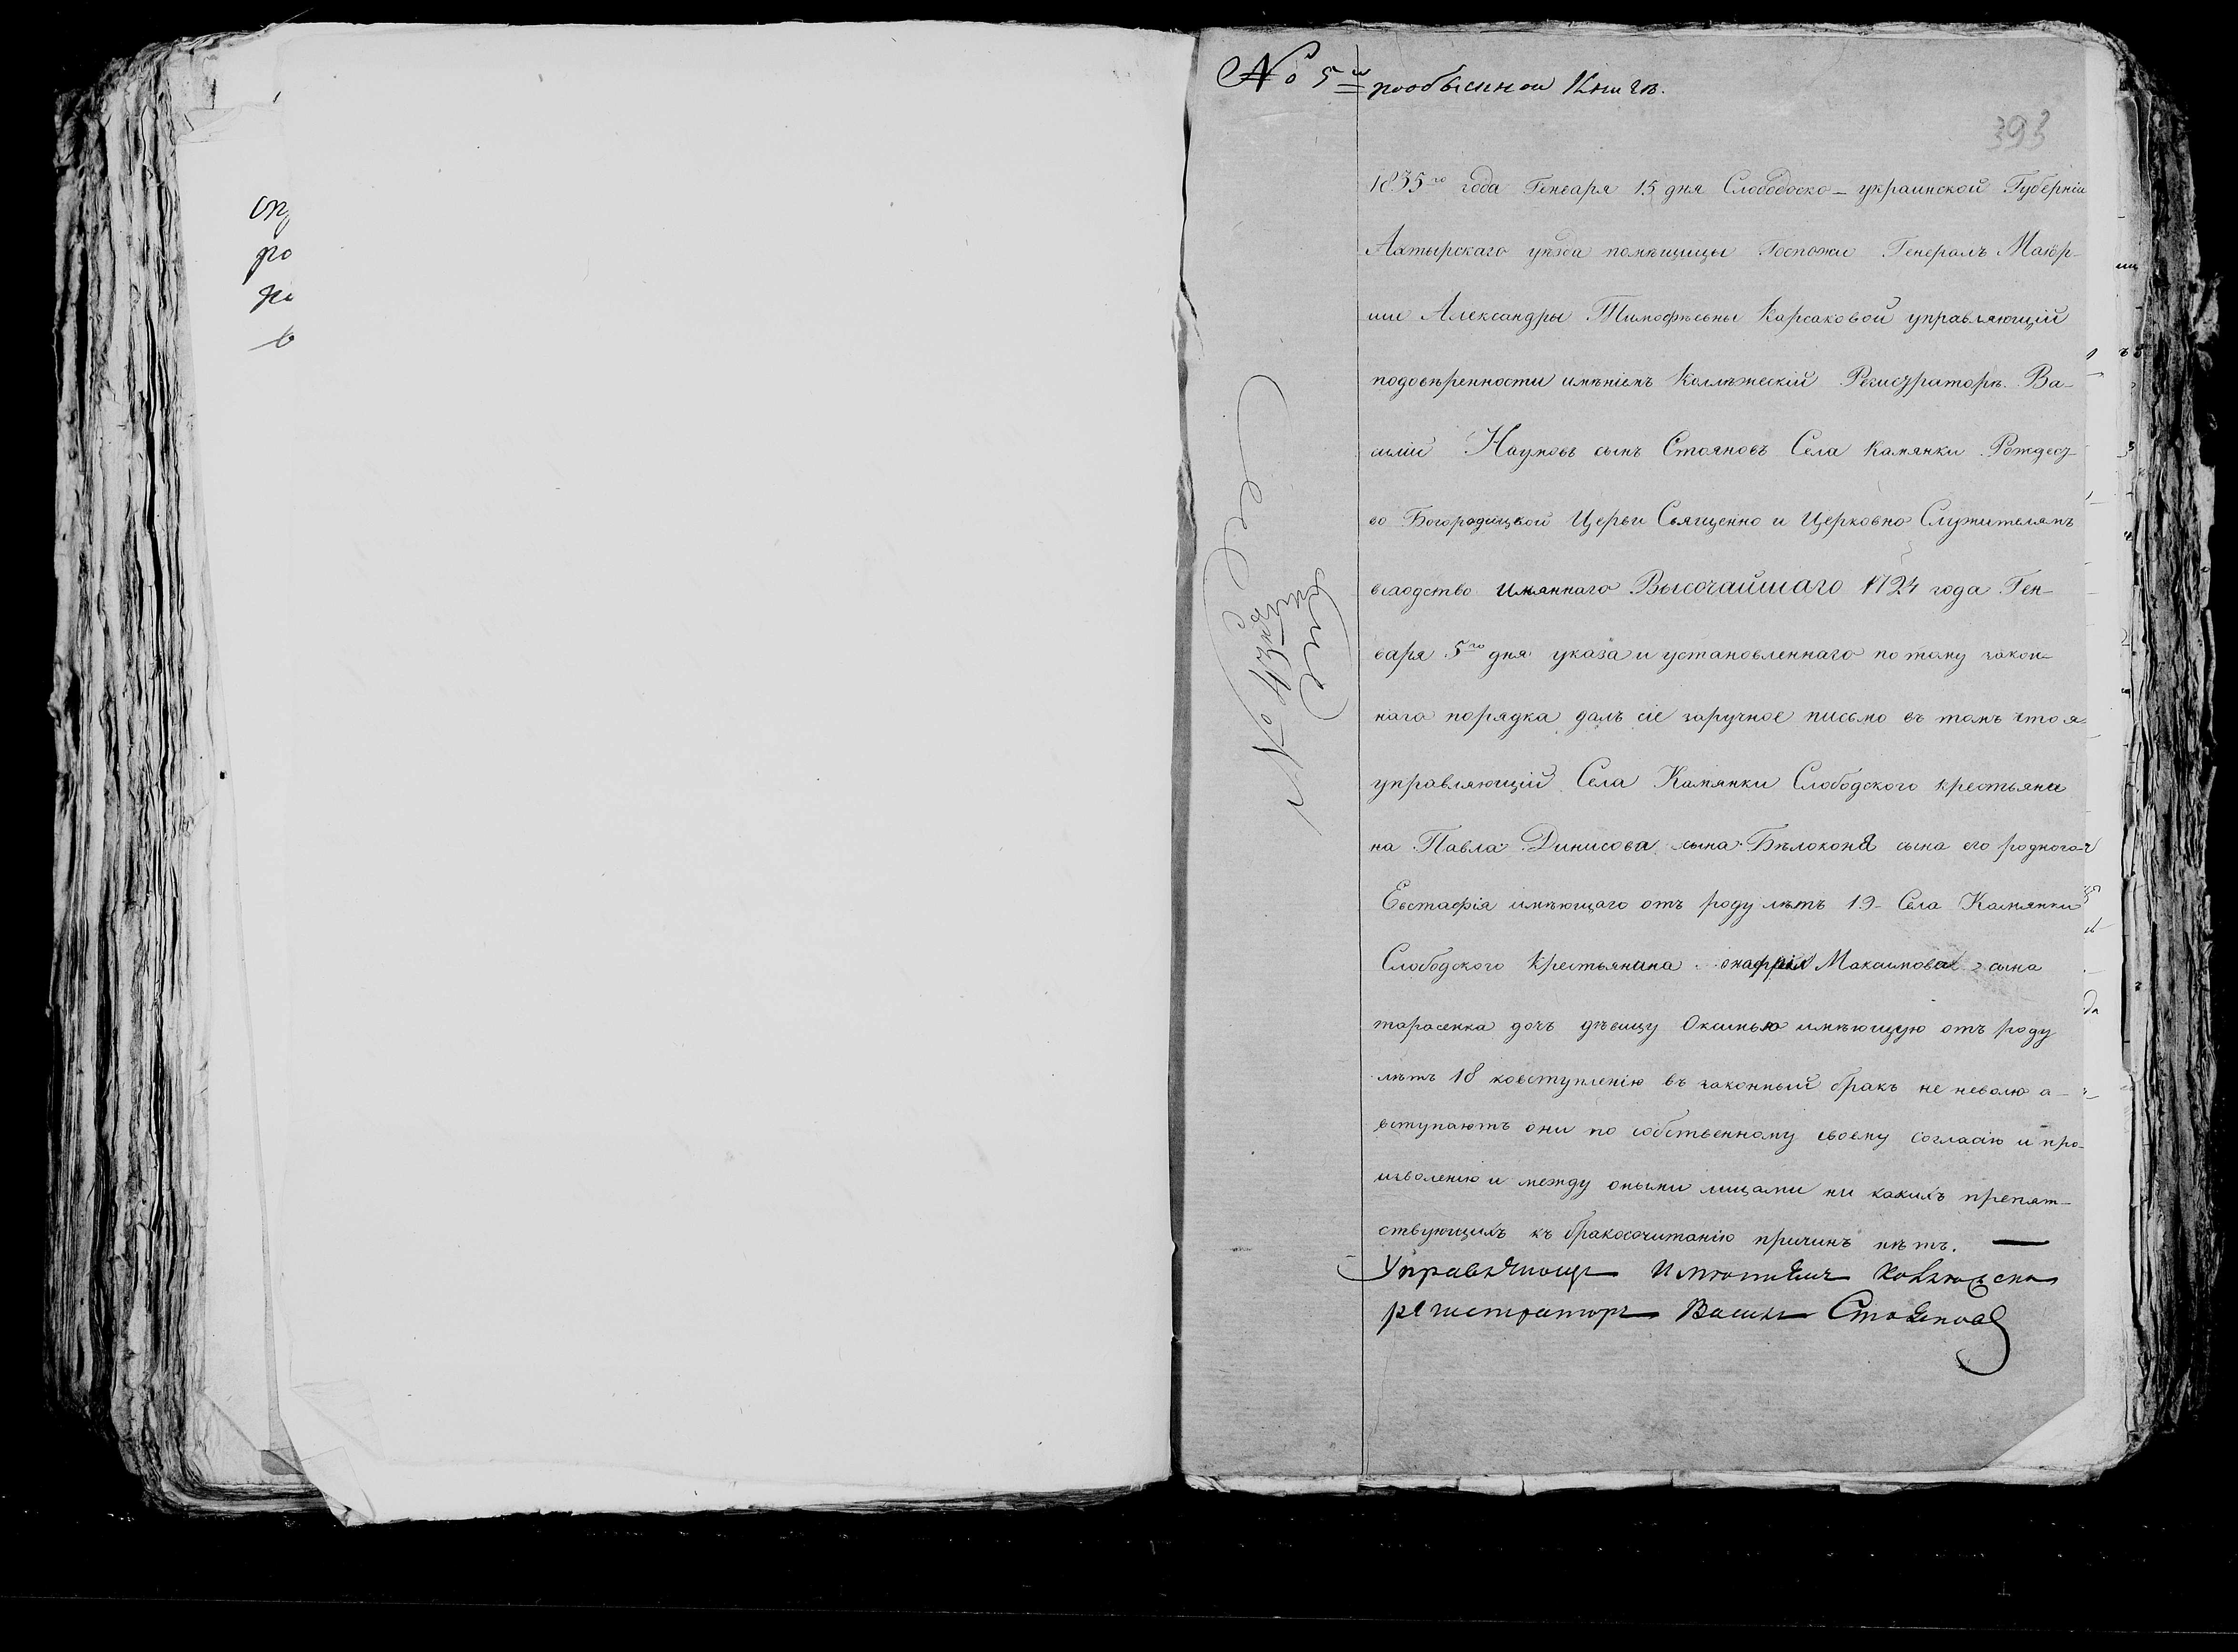 № 5й пообыскной Книгѣ.
393
1835го года Генваря 15 дня Слободско-украинской Губерніи
Ахтырскаго уѣзда помѣщицы Госпожи Генералъ Маіор-
ши Александры Тимофѣевны Карсаковой управляющій
подовѣренности имѣніемъ Коллѣжескій Регистраторъ Ва-
силій Наумовъ сынъ Стояновъ Села Камянки Рождест-
во Богородицкой Церьви Священно и Церковно Служителямъ
всходство имяннаго Высочайшаго 1724 года Ген-
варя 5го дня указа и установленнаго по тому закон-
наго порядка далъ сіе заручное письмо въ томъ что я
управляющій Села Камянки Слободского крестьяни
на Павла Динисова сына Бѣлоконя сына его родного
Евстафія имѣющаго отъ роду лѣтъ 19 Села Камянки
Слободского Крестьянина онафрія Максимова сына
тарасенка дочь дѣвицу Оксинью имѣющую отъ роду
лѣтъ 18 ковступленію въ законный бракъ не неволю а
вступаютъ они по собственному своему согласію и про-
изволенію и между оными лицами ни какихъ препят-
ствующихъ къ бракосочитанію причинъ нѣтъ.
Управляющи Имѣниемъ
регистраторъ Васили Стоянов
№ 43